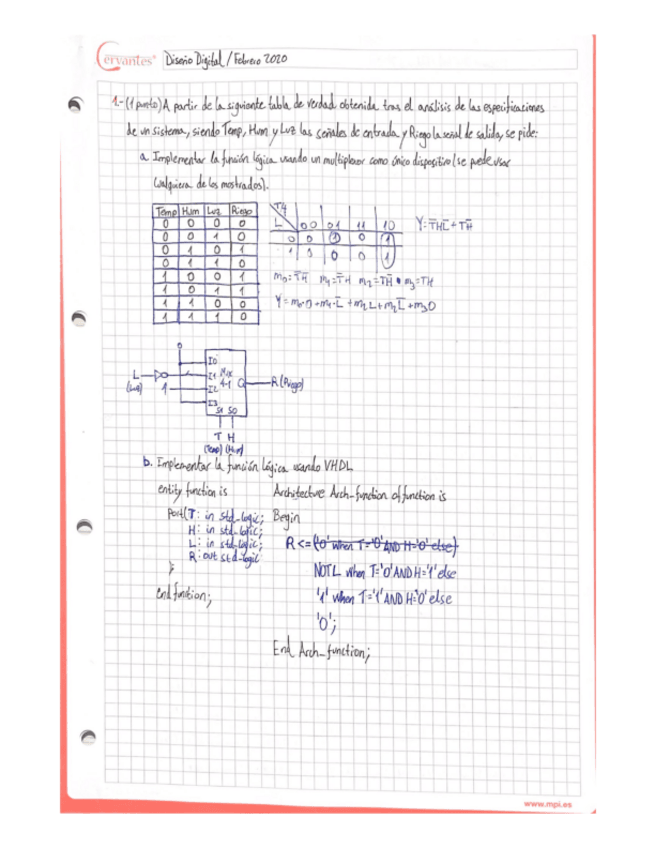 Cervantes® Diseño Digital / Febrero 2020
1.- (1 punto) A partir de la siguiente tabla de verdad obtenida tras el análisis de las especificaciones
de un sistema, siendo Temp, Hum y Luz las señales de entrada y Riego la señal de salida, se pide:
a. Implementar la función lógica usando un multiplexor como único dispositivo (se puede usar
cualquiera de los mostrados).
Temp Hum Luz Riego
0 0 0 0
0 0 1 0
0 1 0 1
0 1 1 0
1 0 0 1
1 0 1 1
1 1 0 0
1 1 1 0
L 00 01 11 10
0 0 1 0 1
1 0 0 0 1
Y = T̄HL̄ + TH̄
m₀ = T̄H̄ m₁ = T̄H m₂ = TH̄ m₃ = TH
Y = m₀·0 + m₁·L̄ + m₂L + m₂L̄ + m₃0
0
I0
L I1 Mux
(Luz) 1 I2 4-1 R (Riego)
I3
S1 S0
T H
(Temp) (Hum)
b. Implementar la función lógica usando VHDL
entity function is
Port(T: in std_logic;
H: in std_logic;
L: in std_logic;
R: out std_logic
);
end function;
Architecture Arch_function of function is
Begin
R <= ('0' when T='0' AND H='0' else)
NOT L when T='0' AND H='1' else
'1' when T='1' AND H='0' else
'0';
End Arch_function;
www.mpi.es